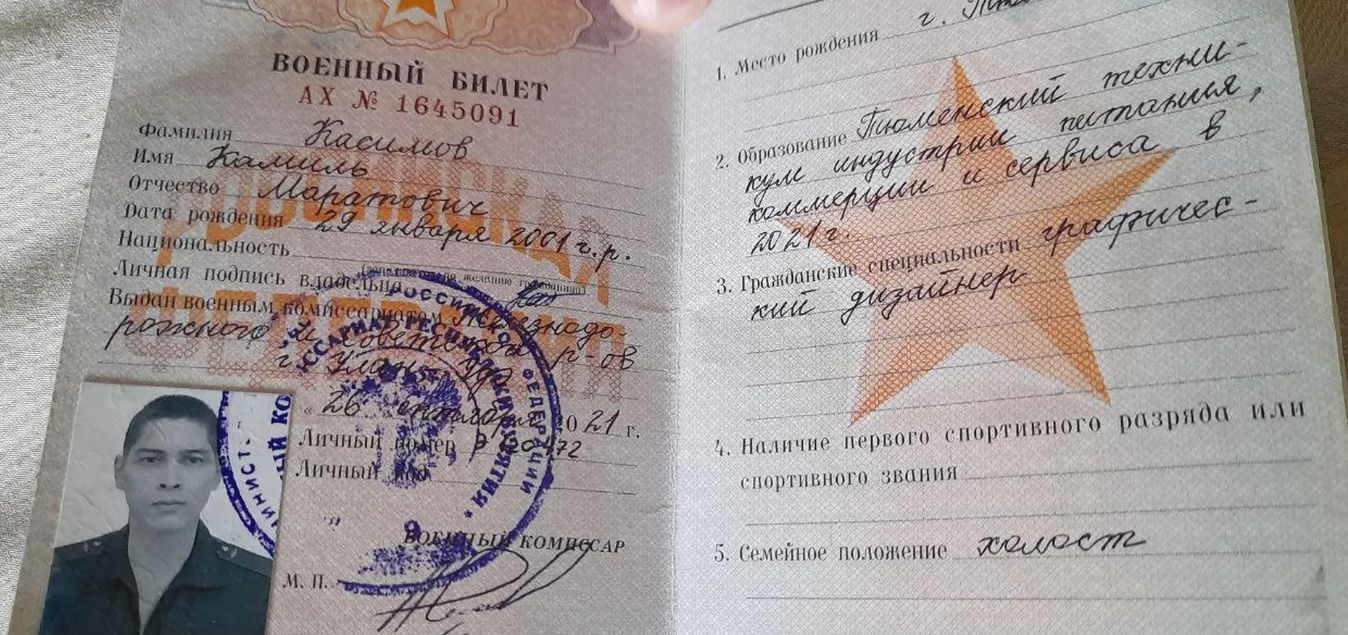 ВОЕННЫЙ БИЛЕТ
АХ № 1645091
Фамилия Касимов
Имя Камиль
Отчество Маратович
Дата рождения 29 января 2001 г.р.
Национальность
(заполняется по желанию гражданина)
Личная подпись владельца
Выдан военным комиссариатом Железнодо-
рожного и Советского р-ов
г. Улан-Удэ
"26 2021 г.
Личный номер
Личный
ВОЕННЫЙ КОМИССАР
М. П.
РОССИЙСКАЯ
ФЕДЕРАЦИЯ
1. Место рождения г.
2. Образование Тюменский техни-
кум индустрии питания,
коммерции и сервиса в
2021 г.
3. Гражданские специальности графичес-
кий дизайнер
4. Наличие первого спортивного разряда или
спортивного звания
5. Семейное положение холост